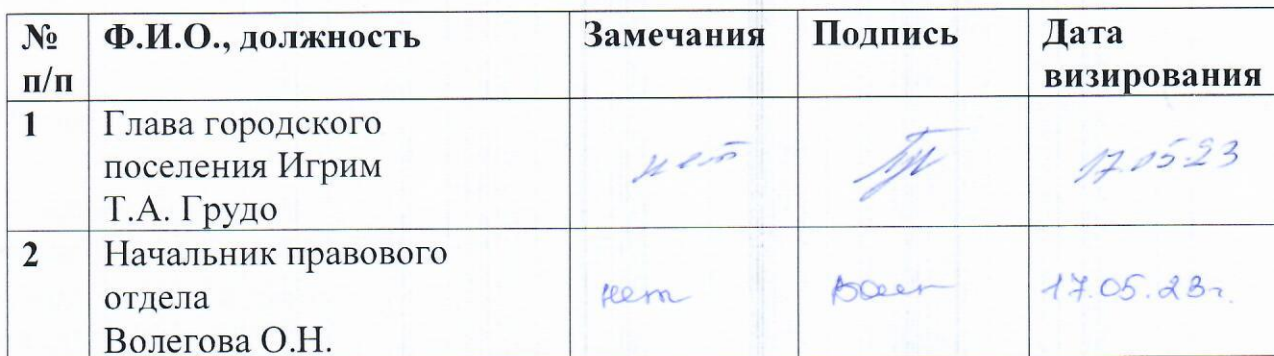 № п/п Ф.И.О., должность Замечания Подпись Дата визирования
1 Глава городского
поселения Игрим
Т.А. Грудо нет 17.05.23
2 Начальник правового
отдела
Волегова О.Н. нет 17.05.23г.